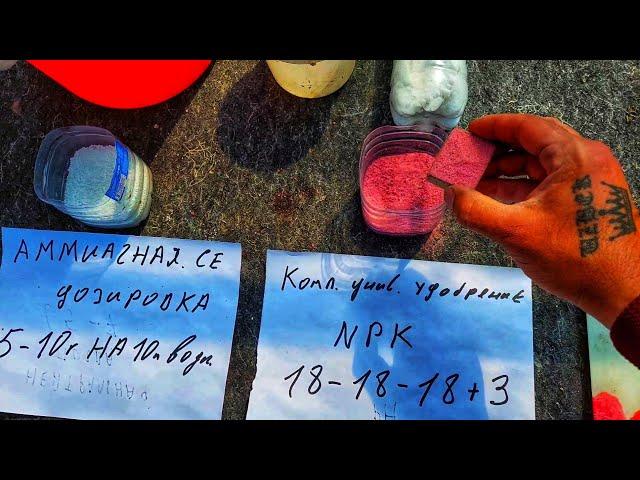 АММИАЧНАЯ. СЕ
ДОЗИРОВКА
5-10г НА 10л воды
Комп. унив. удобрение
NPK
18-18-18+3